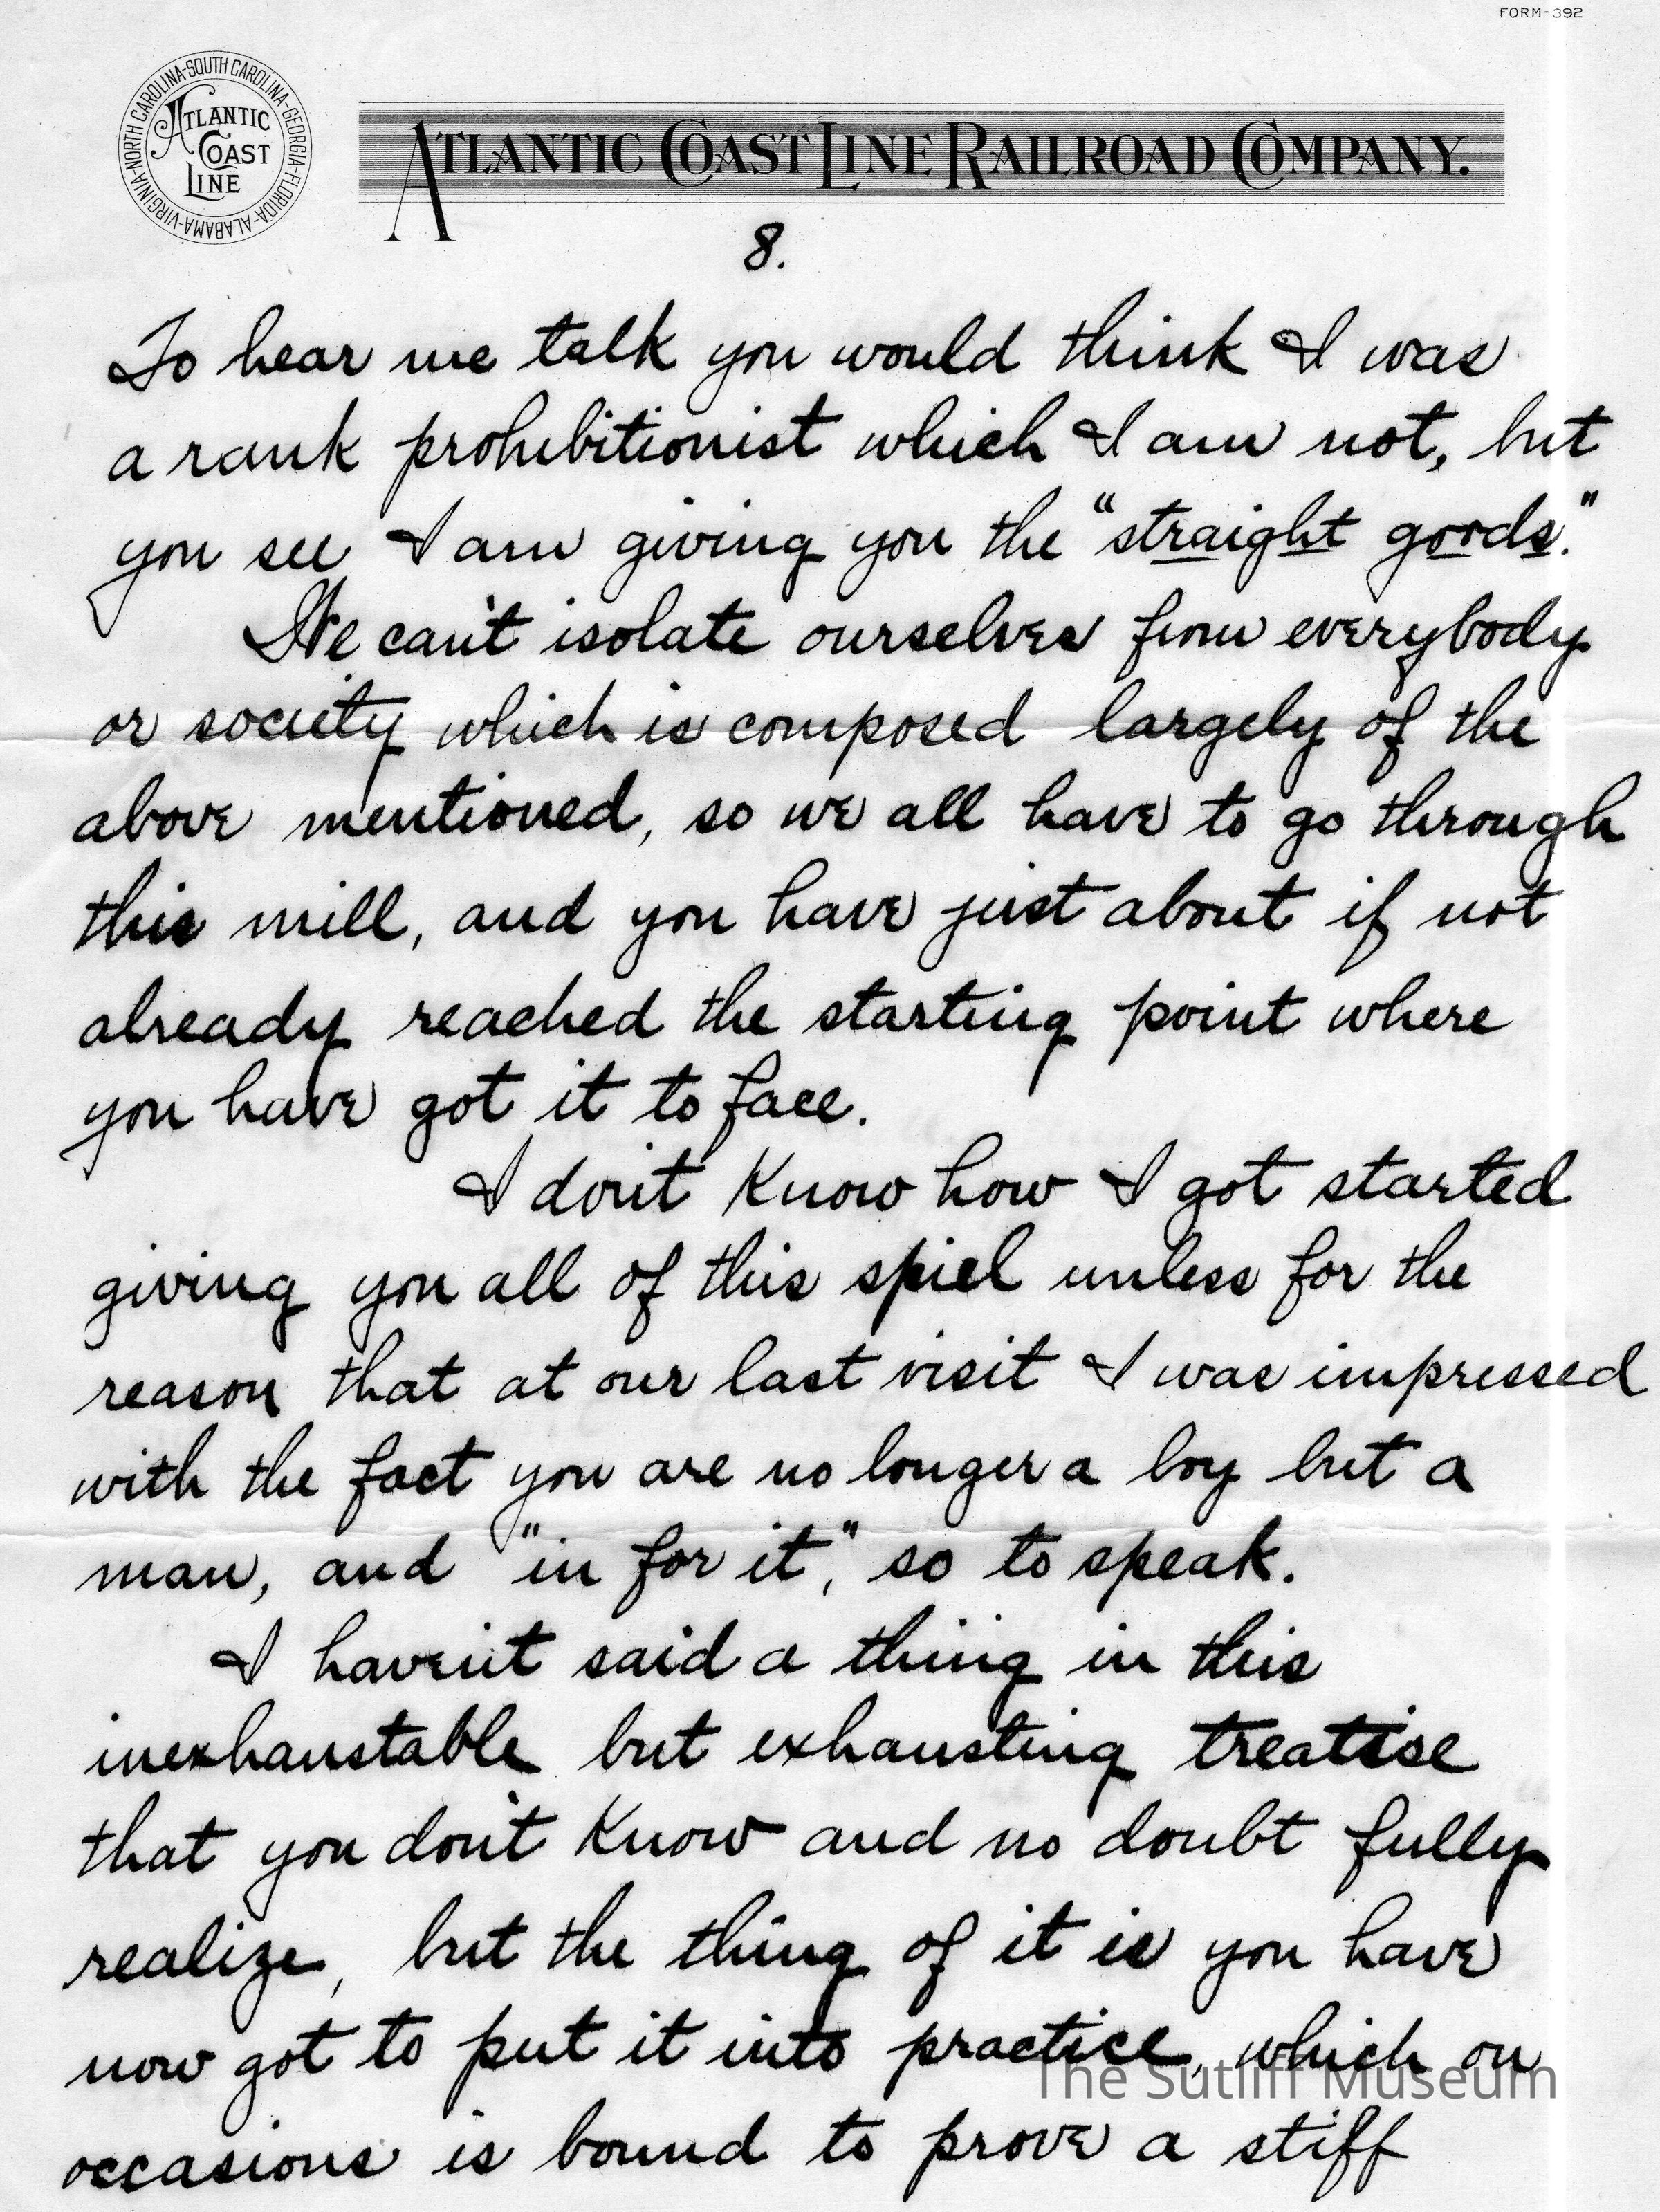 FORM-392
NORTH CAROLINA-SOUTH CAROLINA-GEORGIA-FLORIDA-ALABAMA-VIRGINIA-
ATLANTIC
COAST
LINE
ATLANTIC COAST LINE RAILROAD COMPANY.
8.
To hear me talk you would think I was
a rank prohibitionist which I am not, but
you see I am giving you the "straight goods."
We can't isolate ourselves from everybody
or society which is composed largely of the
above mentioned, so we all have to go through
this mill, and you have just about if not
already reached the starting point where
you have got it to face.
I don't know how I got started
giving you all of this spiel unless for the
reason that at our last visit I was impressed
with the fact you are no longer a boy but a
man, and "in for it," so to speak.
I haven't said a thing in this
inexhaustable but exhausting treatise
that you don't know and no doubt fully
realize, but the thing of it is you have
now got to put it into practice, which on
occasions is bound to prove a stiff
The Sutliff Museum